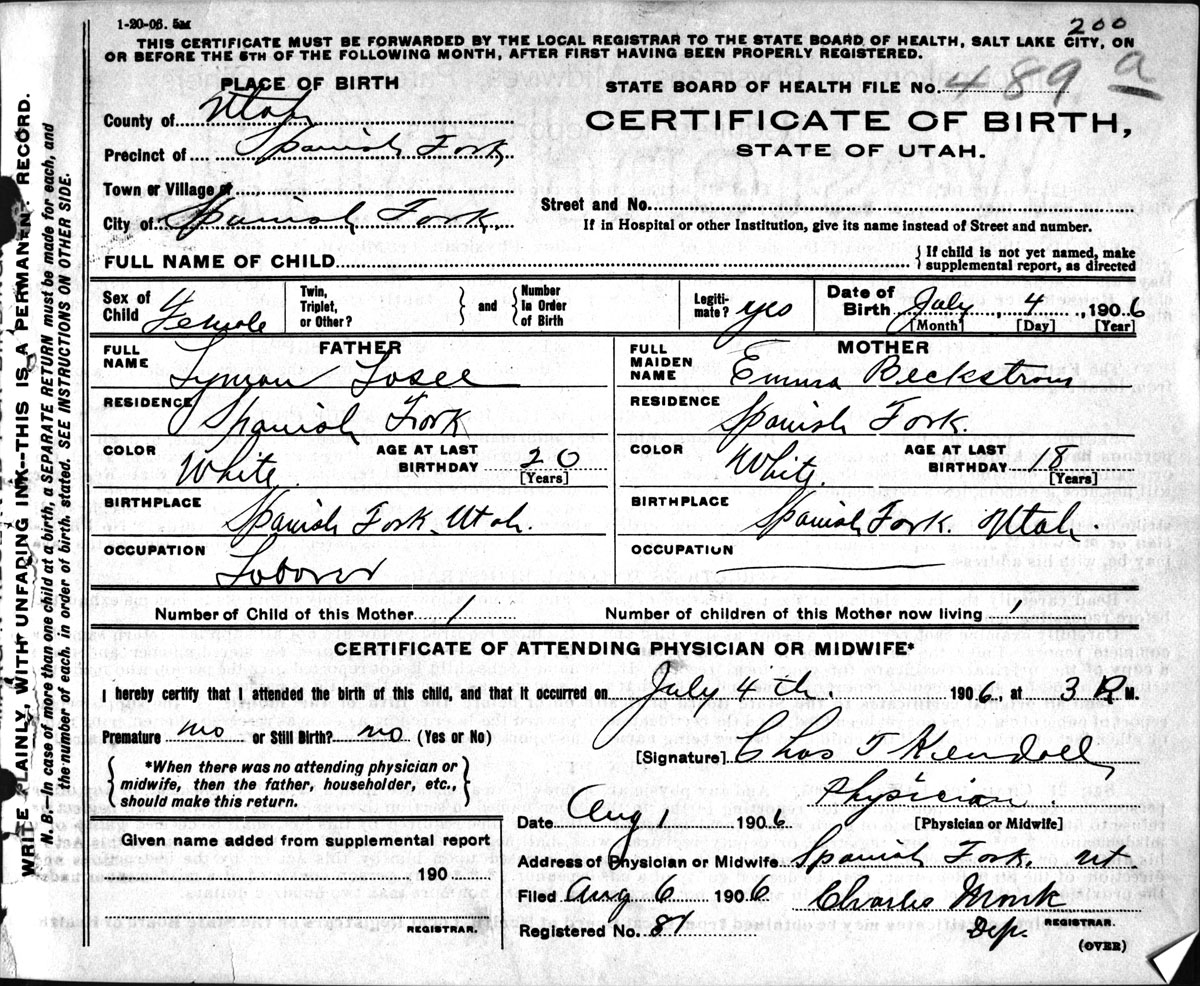 1-20-06. 5M
200
THIS CERTIFICATE MUST BE FORWARDED BY THE LOCAL REGISTRAR TO THE STATE BOARD OF HEALTH, SALT LAKE CITY, ON
OR BEFORE THE 5TH OF THE FOLLOWING MONTH, AFTER FIRST HAVING BEEN PROPERLY REGISTERED.
PLACE OF BIRTH
STATE BOARD OF HEALTH FILE No. 489 a
County of Utah
CERTIFICATE OF BIRTH,
STATE OF UTAH.
Precinct of Spanish Fork
Town or Village of
City of Spanish Fork.
Street and No.
If in Hospital or other Institution, give its name instead of Street and number.
FULL NAME OF CHILD
{If child is not yet named, make
supplemental report, as directed
Sex of Child Female
Twin, Triplet, or Other?
and
Number In Order of Birth
Legiti- mate? yes
Date of Birth July 4, 1906
[Month] [Day] [Year]
FATHER
FULL NAME Lyman Losee
RESIDENCE Spanish Fork
COLOR White. AGE AT LAST BIRTHDAY 20
[Years]
BIRTHPLACE Spanish Fork Utah.
OCCUPATION Laborer
MOTHER
FULL MAIDEN NAME Emma Beckstrom
RESIDENCE Spanish Fork.
COLOR White. AGE AT LAST BIRTHDAY 18
[Years]
BIRTHPLACE Spanish Fork. Utah.
OCCUPATION
Number of Child of this Mother 1
Number of children of this Mother now living 1
CERTIFICATE OF ATTENDING PHYSICIAN OR MIDWIFE*
I hereby certify that I attended the birth of this child, and that it occurred on July 4th. 1906, at 3 P. M.
Premature no or Still Birth? no (Yes or No)
[Signature] Chas T. Kendall
*When there was no attending physician or
midwife, then the father, householder, etc.,
should make this return.
Physician.
[Physician or Midwife]
Date Aug 1 1906
Given name added from supplemental report
190
REGISTRAR.
Address of Physician or Midwife Spanish Fork. Ut
Filed Aug 6 1906 Charles Monk
Dep. REGISTRAR.
Registered No. 84
(OVER)
WRITE PLAINLY, WITH UNFADING INK--THIS IS A PERMANENT RECORD.
N. B.--In case of more than one child at a birth, a SEPARATE RETURN must be made for each, and
the number of each, in order of birth, stated. SEE INSTRUCTIONS ON OTHER SIDE.